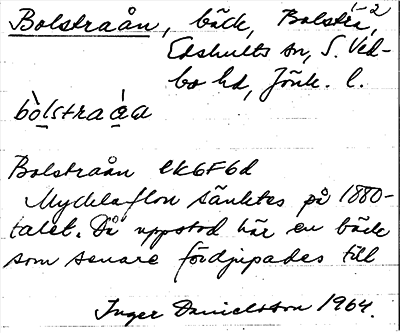 Bolstraån, bäck, Bolstra, 1-2
Edshults sn, S. Ved-
bo hd, Jönk. l.
bòlstraá̱a
Bolstraån ek6F6d
Mycklaflon sänktes på 1880-
talet. Då uppstod här en bäck
som senare fördjupades till
Inger Danielsson 1964.